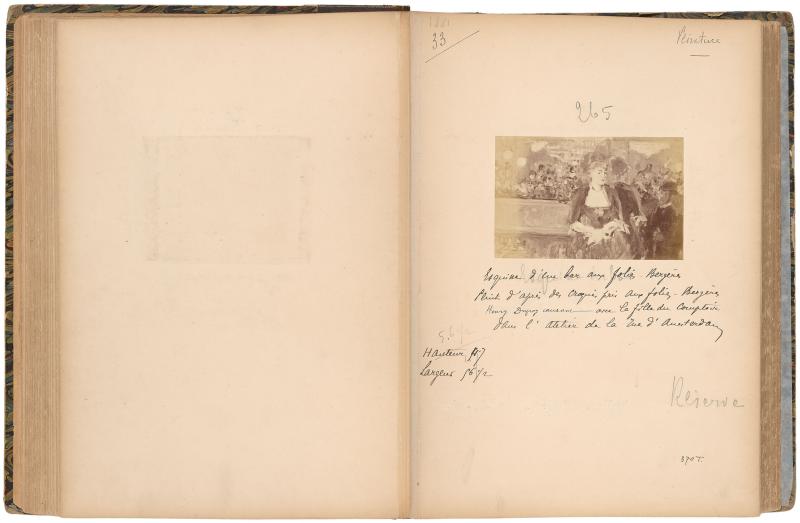 1881
33
Peinture
265
Esquisse d'un bar aux folies-Bergère
Peint d'après des croquis pris aux folies-Bergère
Henry Dupray causant avec la fille du Comptoir
dans l'atelier de la rue d'Amsterdam
Hauteur
Largeur 56 1/2
Réserve
370 T.